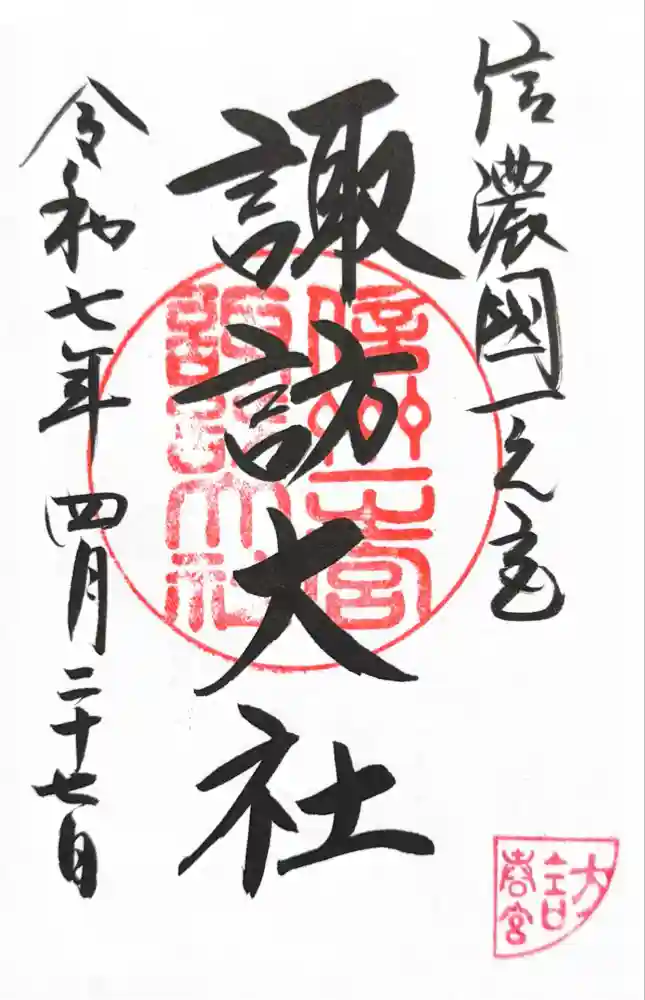 信濃國一之宮
諏訪大社
令和七年四月二十七日
信州一宮
諏訪大社
訪
春宮